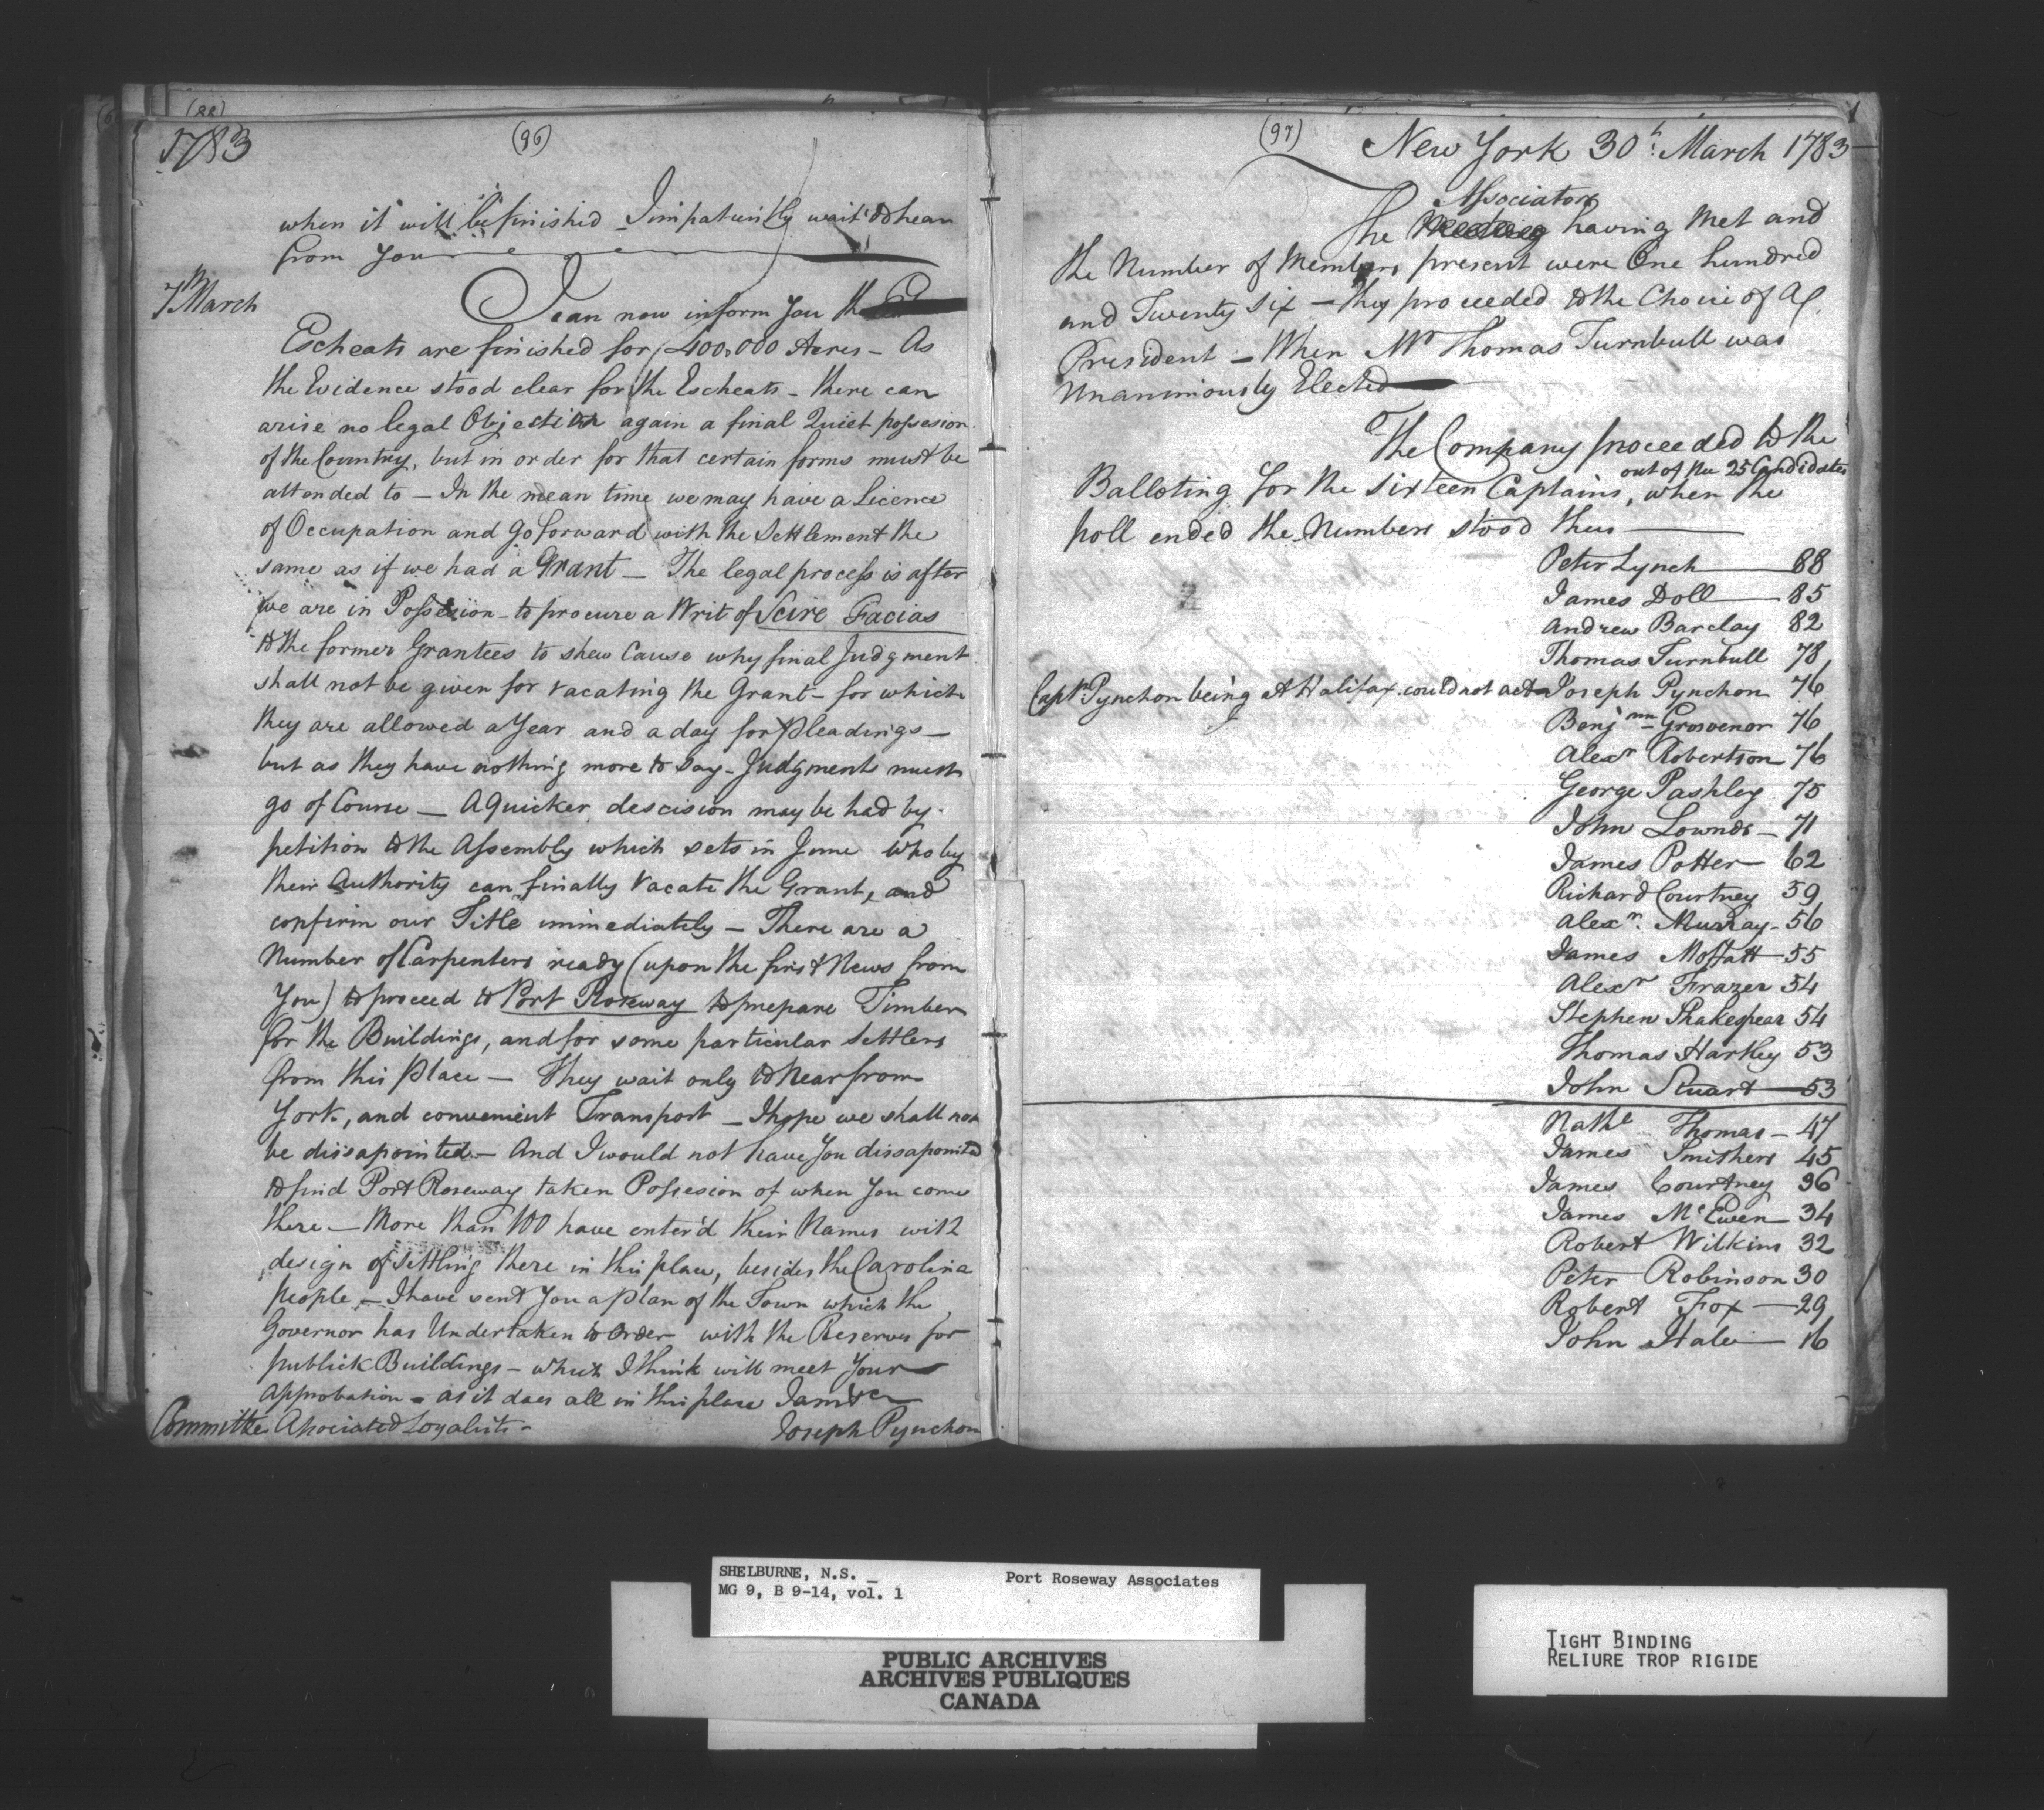 (88)
1783
(96)
when it will be finished - I impatiently wait to hear
from You
7th March
I can now inform You the
Escheats are finished for 400,000 Acres - As
the Evidence stood clear for the Escheats - there can
arise no legal Objection again a final Quiet possesion
of the Country, but in order for that certain forms must be
attended to - In the mean time we may have a Licence
of Occupation and go forward with the Settlement the
same as if we had a Grant - The legal process is after
we are in Possesion - to procure a Writ of Scire Facias
to the former Grantees to shew Cause why final Judgment
shall not be given for vacating the Grant - for which
they are allowed a Year and a day for pleadings -
but as they have nothing more to say - Judgment must
go of Course - A Quicker descision may be had by
petition to the Assembly which sets in June who by
their Authority can finally vacate the Grant, and
confirm our Title immediately - There are a
Number of Carpenters ready (upon the first News from
You) to proceed to Port Roseway to prepare Timber
for the Buildings, and for some particular Settlers
from this place - They wait only to hear from
York, and convenient Transport - I hope we shall not
be dissapointed - And I would not have You dissapointed
to find Port Roseway taken Possesion of when You come
there - More than 100 have enter'd their Names with
design of settling there in this place, besides the Carolina
people - I have sent You a plan of the Town which the
Governor has Undertaken to Order with the Reserves for
publick Buildings - which I think will meet Your
Approbation - as it does all in this place I am &c
Committee Asociated Loyalists - Joseph Pynchon
(97)
New York 30th March 1783
Associators
The Meeting having Met and
the Number of Members present were One hundred
and Twenty Six - they proceeded to the Choice of a
President - When Mr Thomas Turnbull was
Unanimously Elected
The Company proceeded to the
out of the 25 Candidates
Balloting for the Sixteen Captains, when the
poll ended the Numbers stood thus
Peter Lynch 88
James Doll 85
Andrew Barclay 82
Thomas Turnbull 78
Captn Pynchon being at Halifax could not act - Joseph Pynchon 76
Benjmn Grosvenor 76
Alexr Robertson 76
George Pashley 75
John Lownds - 71
James Potter 62
Richard Courtney 59
Alexr. Murray - 56
James Moffatt 55
Alexr Frazer 54
Stephen Shakespear 54
Thomas Hartley 53
John Stuart 53
Nathl Thomas - 47
James Smithers 45
James Courtney 36
James McEwen 34
Robert Wilkins 32
Peter Robinson 30
Robert Fox 29
John Hale 16
SHELBURNE, N.S. - Port Roseway Associates
MG 9, B 9-14, vol. 1
PUBLIC ARCHIVES
ARCHIVES PUBLIQUES
CANADA
TIGHT BINDING
RELIURE TROP RIGIDE